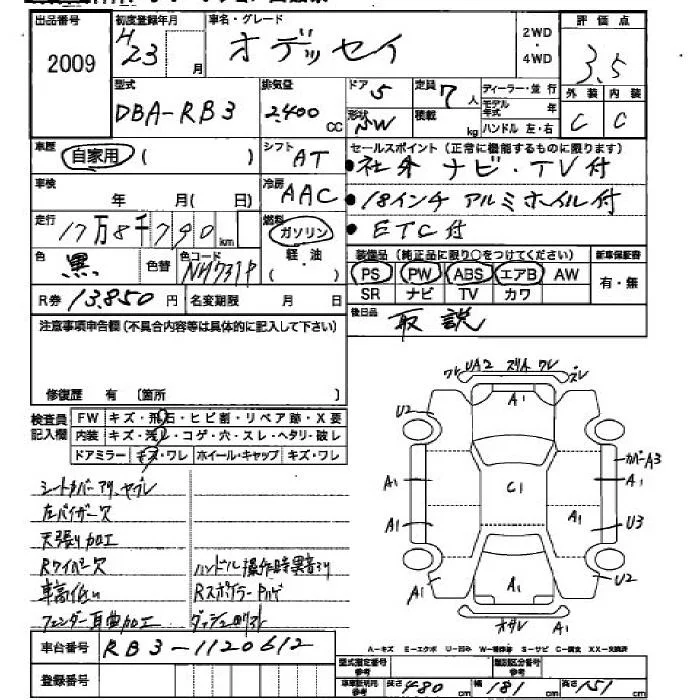 出品番号 初度登録年月 車名・グレード 2WD・4WD 評価点
2009 H23 月 オデッセイ 3.5
型式 排気量 ドア 5 定員 7 人 ディーラー・並 行 外装 内装
DBA-RB3 2,400 cc 形状 SW 積載 kg モデル年式 年 C C
ハンドル 左・右
車歴 自家用 ( ) シフト AT セールスポイント(正常に機能するものに限ります)
• 社外 ナビ・TV付
車検 年 月( 日) 冷房 AAC • 18インチ アルミホイル付
走行 17万8千790 km 燃料 ガソリン • ETC付
軽・油 ( )
色 黒 色替 色コード NH731P 装備品(純正品に限り○をつけてください) 新車保証書
PS PW ABS エアB AW 有・無
R券 13,850 円 名変期限 月 日 SR ナビ TV カワ
注意事項申告欄(不具合内容等は具体的に記入して下さい) 後日品 取説
修復歴 有 〔箇所
検査員記入欄 FW キズ・飛石・ヒビ割・リペア跡・X要
内装 キズ・汚レ・コゲ・穴・スレ・ヘタリ・破レ
ドアミラー キズ・ワレ ホイール・キャップ キズ・ワレ
シートカバーアリ、ヤブレ
左バイザー欠
天張り加工
Rワイパー欠 ハンドル操作時異音有り
車高低い Rスポイラー
フェンダー耳曲加工
ワレ UA2 スリキ ワレ ズレ
U2 A1
カバーA3
A1 C1 A1
A1 A1 U3
A1 A1 U2
オサレ
車台番号 RB3-1120612
A-キズ E-エクボ U-凹み S-サビ C-腐食
登録番号 型式指定番号 参考 類別区分番号 参考
車車証明用 参考 長さ 480 cm 幅 181 cm 高さ 151 cm